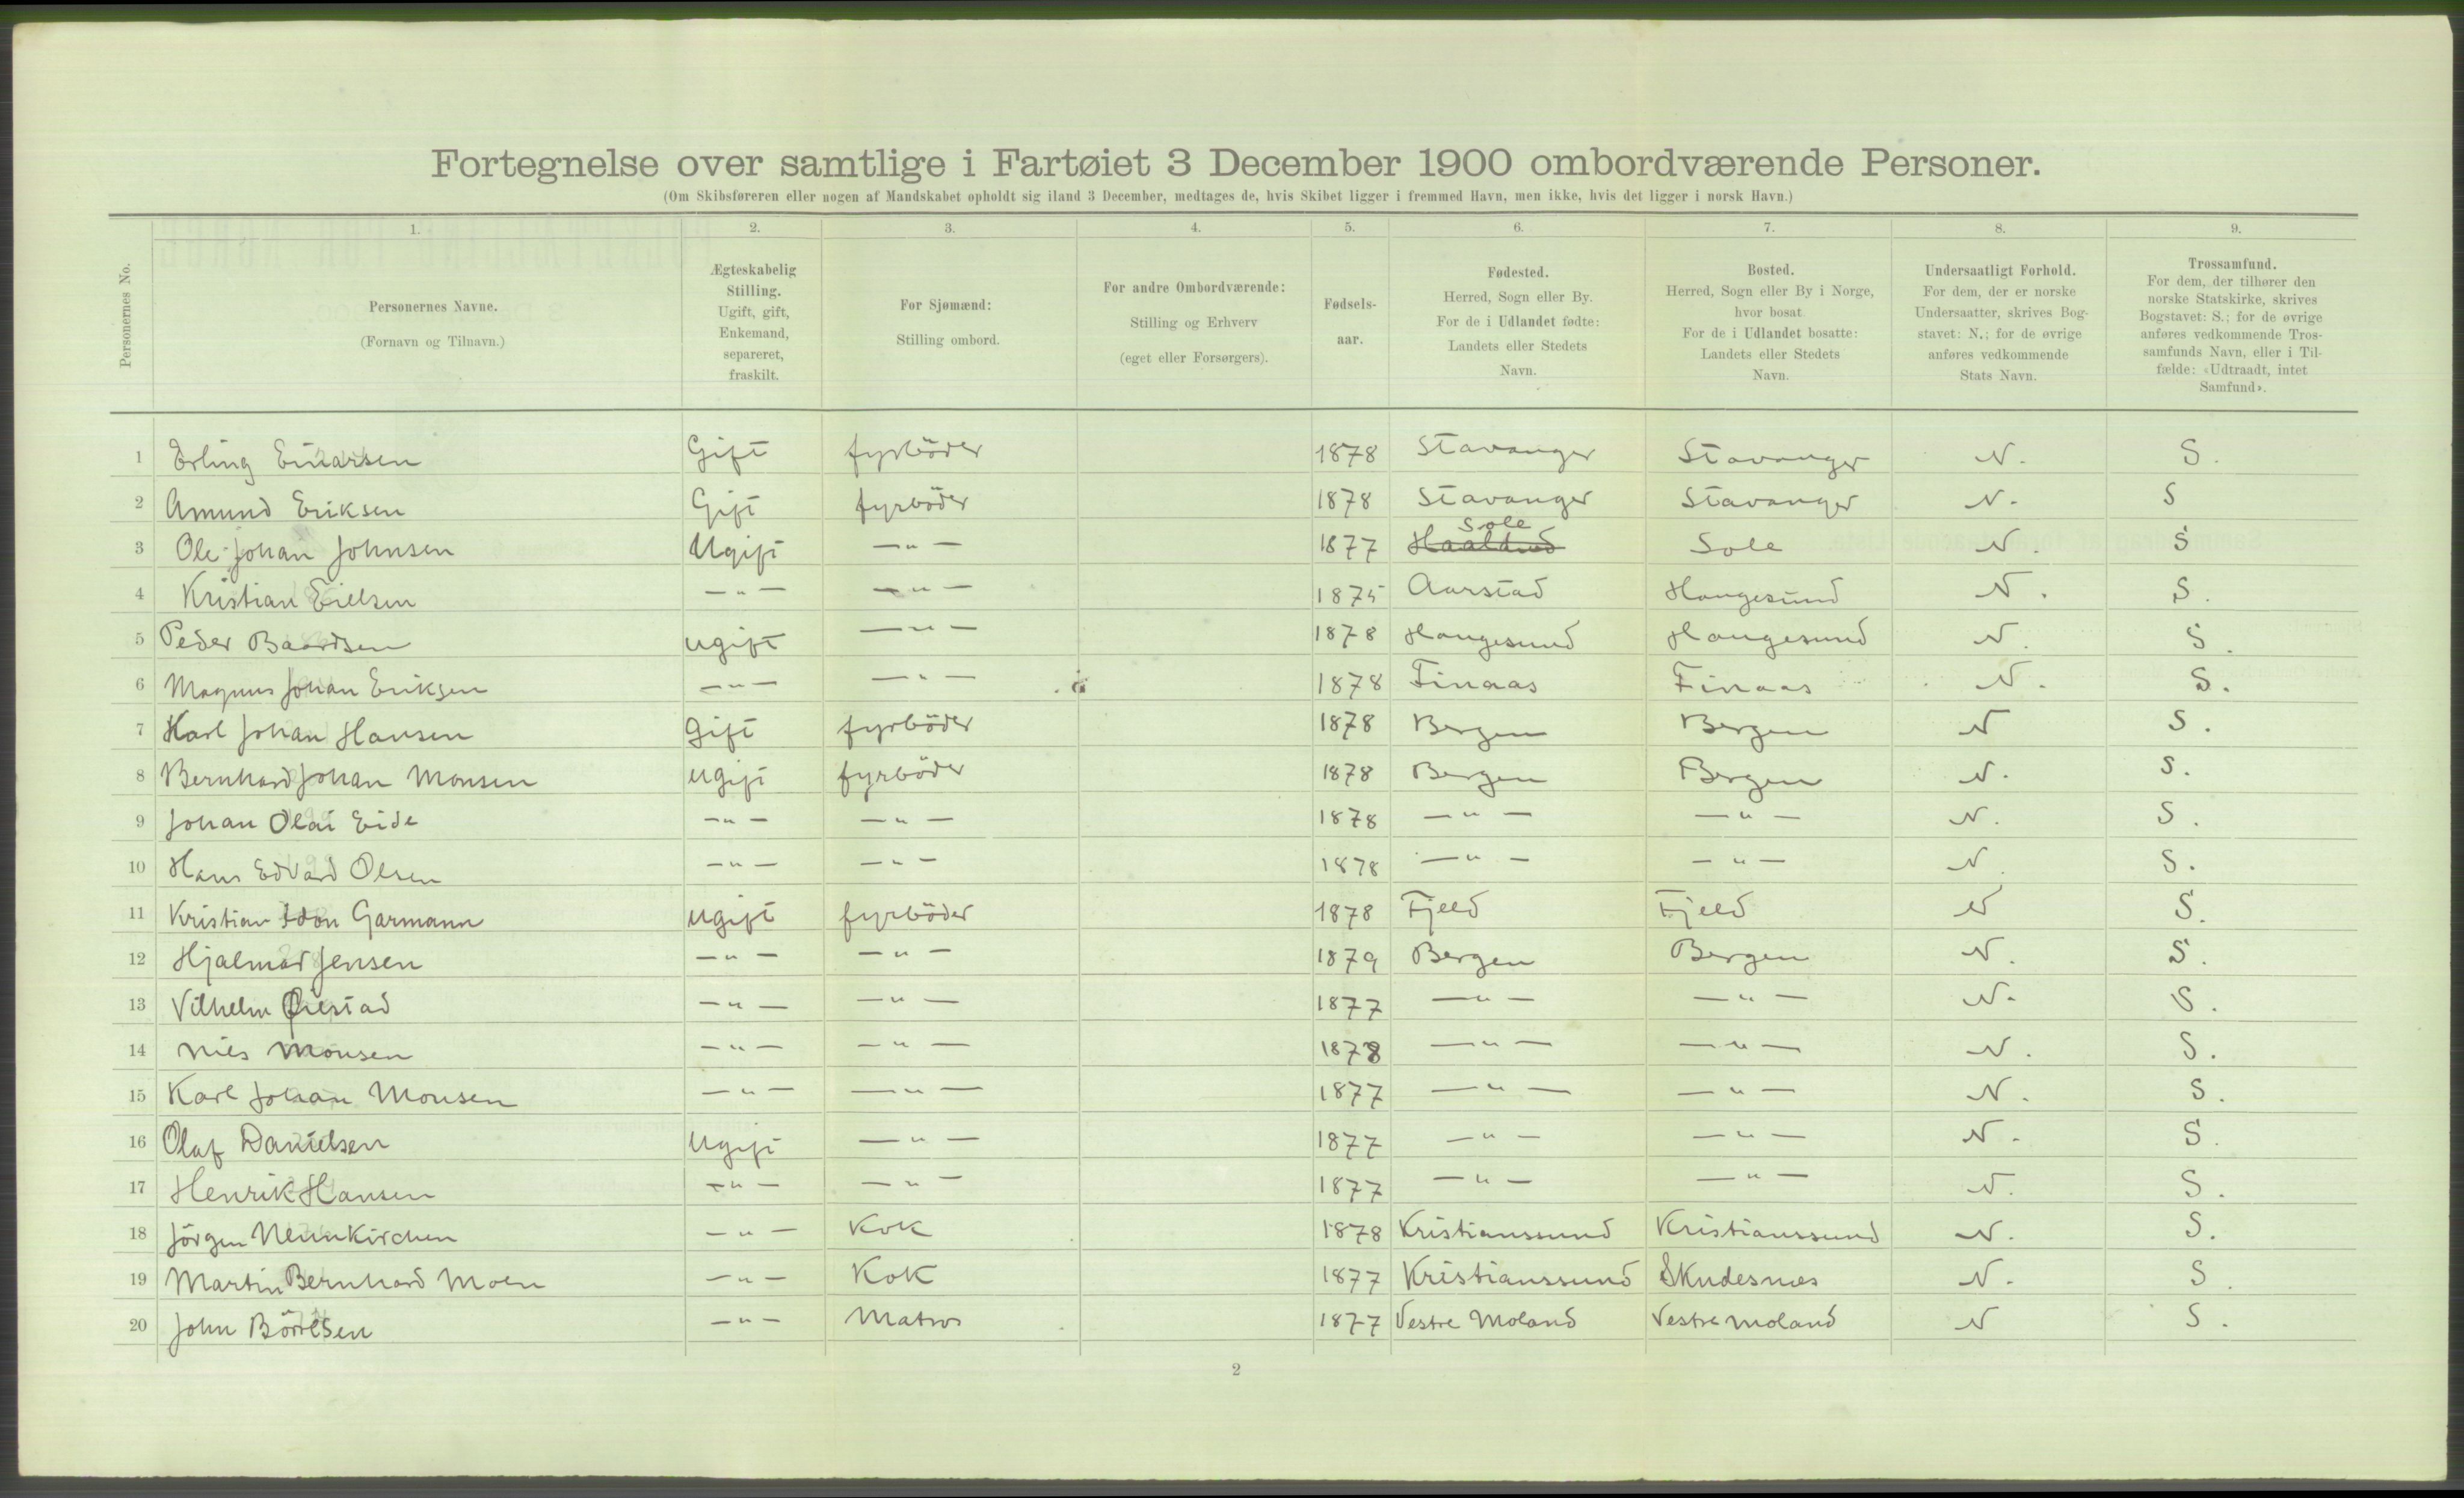 Fortegnelse over samtlige i Fartøiet 3 December 1900 ombordværende Personer.
(Om Skibsføreren eller nogen af Mandskabet opholdt sig iland 3 December, medtages de, hvis Skibet ligger i fremmed Havn, men ikke, hvis det ligger i norsk Havn.)
Personernes No.
1. 2. 3. 4. 5. 6. 7. 8. 9.
Personernes Navne. (Fornavn og Tilnavn.)
Ægteskabelig Stilling. Ugift, gift, Enkemand, separeret, fraskilt.
For Sjømænd: Stilling ombord.
For andre Ombordværende: Stilling og Erhverv (eget eller Forsørgers).
Fødsels-aar.
Fødested. Herred, Sogn eller By. For de i Udlandet fødte: Landets eller Stedets Navn.
Bosted. Herred, Sogn eller By i Norge, hvor bosat For de i Udlandet bosatte: Landets eller Stedets Navn.
Undersaatligt Forhold. For dem, der er norske Undersaatter, skrives Bogstavet: N.; for de øvrige anføres vedkommende Stats Navn.
Trossamfund. For dem, der tilhører den norske Statskirke, skrives Bogstavet: S.; for de øvrige anføres vedkommende Trossamfunds Navn, eller i Tilfælde: «Udtraadt, intet Samfund».
1 Erling Einarsen Gift fyrböder 1878 Stavanger Stavanger N. S.
2 Amund Eriksen Gift fyrböder 1878 Stavanger Stavanger N. S
3 Ole Johan Johnsen Ugift —"— 1877 Sole Sole N. S
4 Kristian Eielsen —"— —"— 1875 Aarstad Haugesund N. S.
5 Peder Baardsen ugift —"— 1878 Haugesund Haugesund N. S.
6 Magnus Johan Eriksen —"— —"— 1878 Finaas Finaas N. S.
7 Karl Johan Hansen Gift fyrböder 1878 Bergen Bergen N S.
8 Bernhard Johan Monsen ugift fyrböder 1878 Bergen Bergen N. S.
9 Johan Olai Eide —"— —"— 1878 —"— —"— N. S.
10 Hans Edvard Olsen —"— —"— 1878 —"— —"— N. S.
11 Kristian Garmann ugift fyrböder 1878 Fjeld Fjeld N S.
12 Hjalmar Jensen —"— —"— 1879 Bergen Bergen N. S.
13 Vilhelm Øiestad —"— —"— 1877 —"— —"— N. S.
14 Nils Monsen —"— —"— 1878 —"— —"— N. S.
15 Karl Johan Monsen —"— —"— 1877 —"— —"— N. S.
16 Olaf Danielsen Ugift —"— 1877 —"— —"— N. S.
17 Henrik Hansen —"— —"— 1877 —"— —"— N. S.
18 Jörgen Neunkirchen —"— Kok 1878 Kristianssund Kristianssund N. S.
19 Martin Bernhard Moen —"— Kok 1877 Kristianssund Skudesnes N. S.
20 John Börresen —"— Matros 1877 Vestre Moland Vestre Moland N S.
2